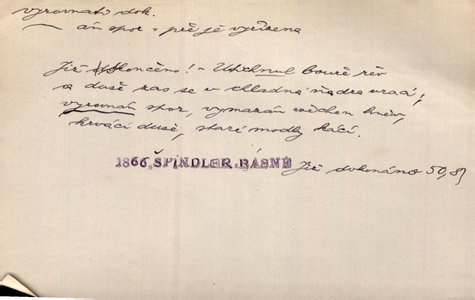 vyrovnati dok.
— án spor v při je vyřízena
Již skončeno! – Utichnul bouře řev
a duše zas se v chladná ňadra vrací;
vyrovnán spor, vymazán všechen hněv,
krvácí duše, staré modly kácí.
1866, ŠPINDLER, BÁSNĚ
Již dokonáno 50,